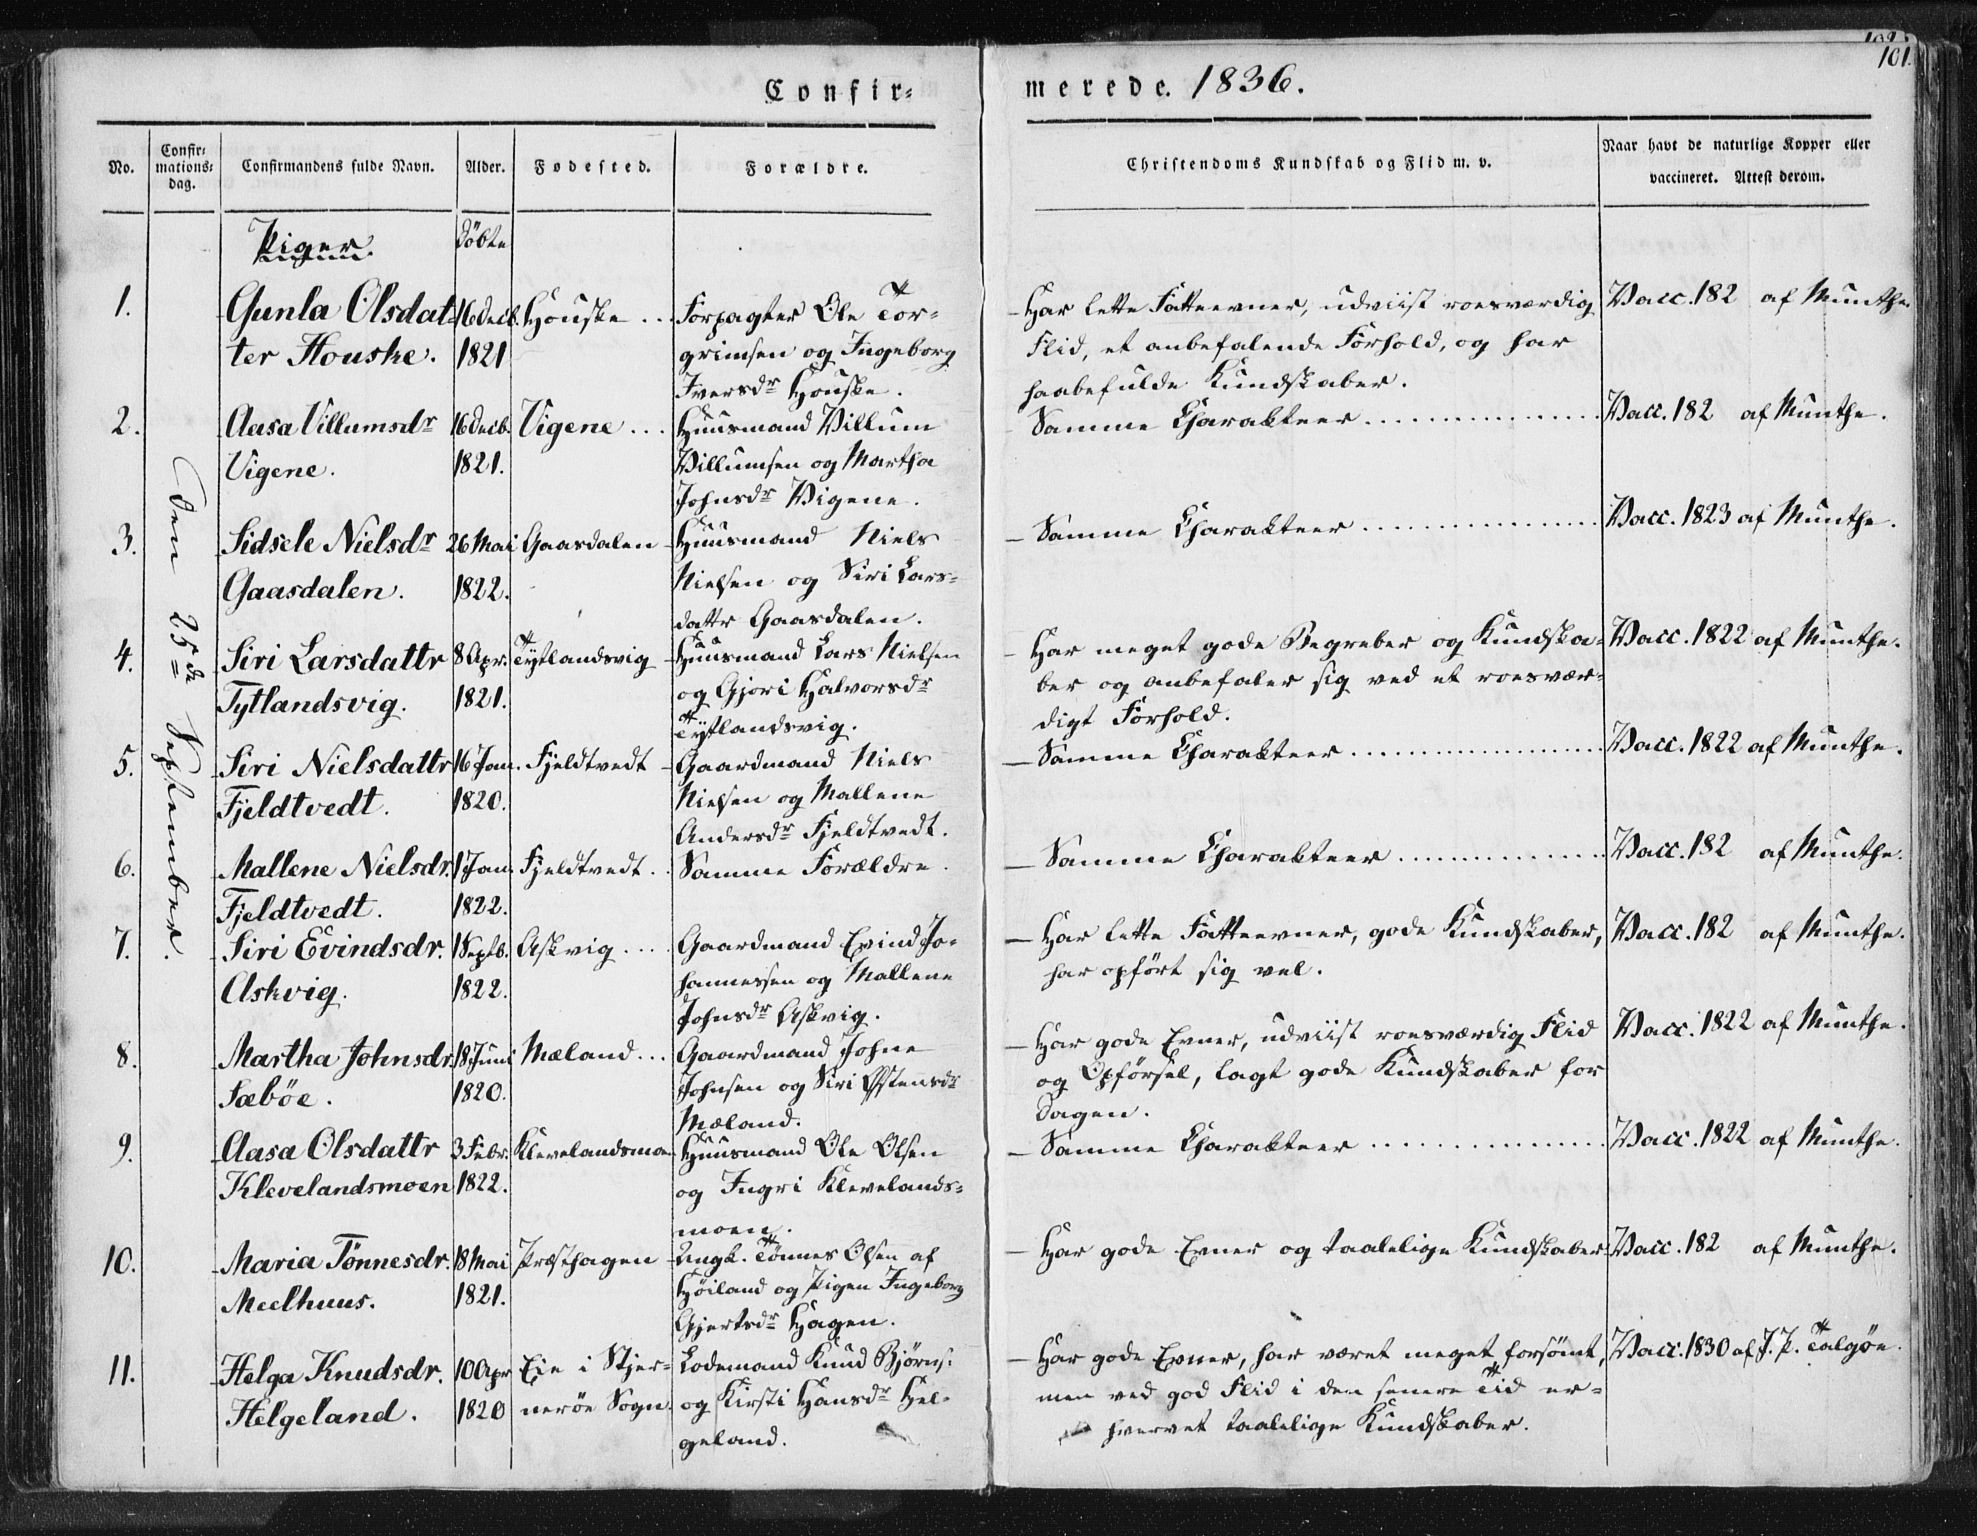 Confir=
merede. 1836.
101.
No.
Confir=
mations=
dag.
Confirmandens fulde Navn.
Alder.
Fødested.
Forældre.
Christendoms Kundskab og Flid m. v.
Naar havt de naturlige Kopper eller
vaccineret. Attest derom.
Den 25de September.
Piger. döbte
1. Gunla Olsdat= 16 Decb. Houske .. Forpagter Ole Tor= Har lette Fatteevner, udviist roesværdig Vacc. 182 af Munthe.
ter Houske. 1821 grimsen og Ingeborg Flid, et anbefalende Forhold, og har
Iversdr Houske. haabefulde Kundskaber.
2. Aasa Villumsdr 16 Decb. Vigene ... Huusmand Villum Samme Charakteer Vacc. 182 af Munthe.
Vigene. 1821. Villumsen og Martha
Johnsdr Vigene.
3. Sidsele Nielsdr 26 Mai Gaasdalen Huusmand Niels Samme Charakteer Vacc. 1823 af Munthe.
Gaasdalen. 1822. Nielsen og Siri Lars=
dattr Gaasdalen.
4. Siri Larsdattr 8 Apr. Tytlandsvig Huusmand Lars Nielsen Har meget gode Begreber og Kundska= Vacc. 1822 af Munthe.
Tytlandsvig. 1821. og Gjøri Halvorsdr ber og anbefaler sig ved et roesvær=
Tytlandsvig. digt Forhold.
5. Siri Nielsdattr 16 Jan. Fjeldtvedt Gaardmand Niels Samme Charakteer Vacc. 1822 af Munthe.
Fjeldtvedt. 1820. Nielsen og Mallene
Andersdr Fjeldtvedt.
6. Mallene Nielsdr. 1 Jan. Fjeldtvedt . Samme Forældre. Samme Charakteer Vacc. 182 af Munthe.
Fjeldtvedt. 1822.
7. Siri Evindsdr. 1 Septb. Askvig ... Gaardmand Evind Jo= Har lette Fatteevner, gode Kundskaber, Vacc. 182 af Munthe.
Askvig. 1822. hannessen og Mallene har opført sig vel.
Johnsdr Askvig.
8. Martha Johnsdr. 18 Juni Mæland ... Gaardmand Johne Har gode Evner, udviist roesværdig Flid Vacc. 1822 af Munthe.
Sæbøe. 1820. Johnsen og Siri Østensdr og Opførsel, lagt gode Kundskaber for
Mæland. Dagen.
9. Aasa Olsdattr 3 Febr. Klevelandsmoen Huusmand Ole Olsen Samme Charakteer Vacc. 1822 af Munthe.
Klevelandsmoen 1822. og Ingri Klevelands=
moen.
10. Maria Tönnesdr. 18 Mai Præsthagen Ungk. Tönnes Olsen af Har gode Evner og taalelige Kundskaber Vacc. 182 af Munthe.
Meelhuus. 1821. Høiland og Pigen Ingeborg
Gjertsdr Hagen.
11. Helga Knudsdr. 10 Apr Eie i Stjer= Lodsmand Knud Bjørns: Har gode Evner, har været meget forsømt, Vacc. 1830 af J. P. Talgøe.
Helgeland. 1820 nerøe Sogn. og Kirsti Hansdr Hel= men ved god Flid i den senere Tid er=
geland. hvervet taalelige Kundskaber.